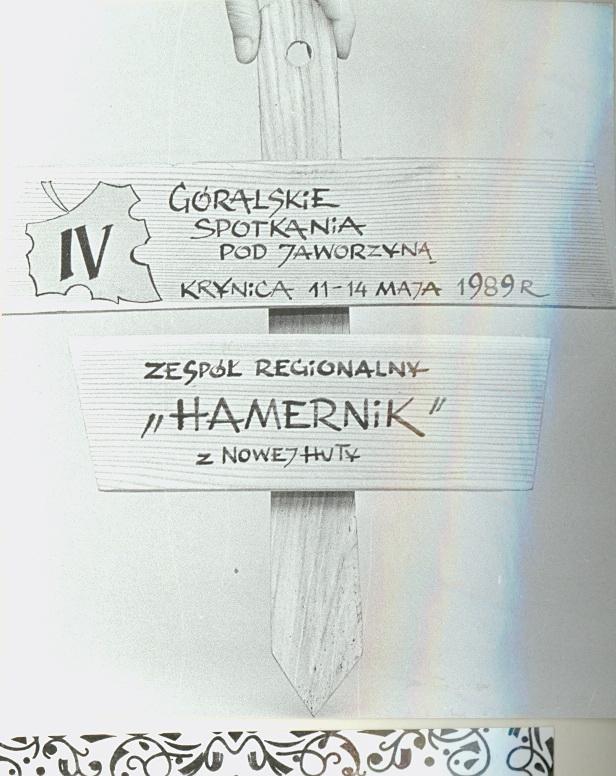 IV
GÓRALSKiE
SPOTKANiA
POD JAWORZYNĄ
KRYNiCA 11-14 MAJA 1989 R
ZESPÓŁ REGiONALNY
„HAMERNiK”
z NOWEJ HUTY